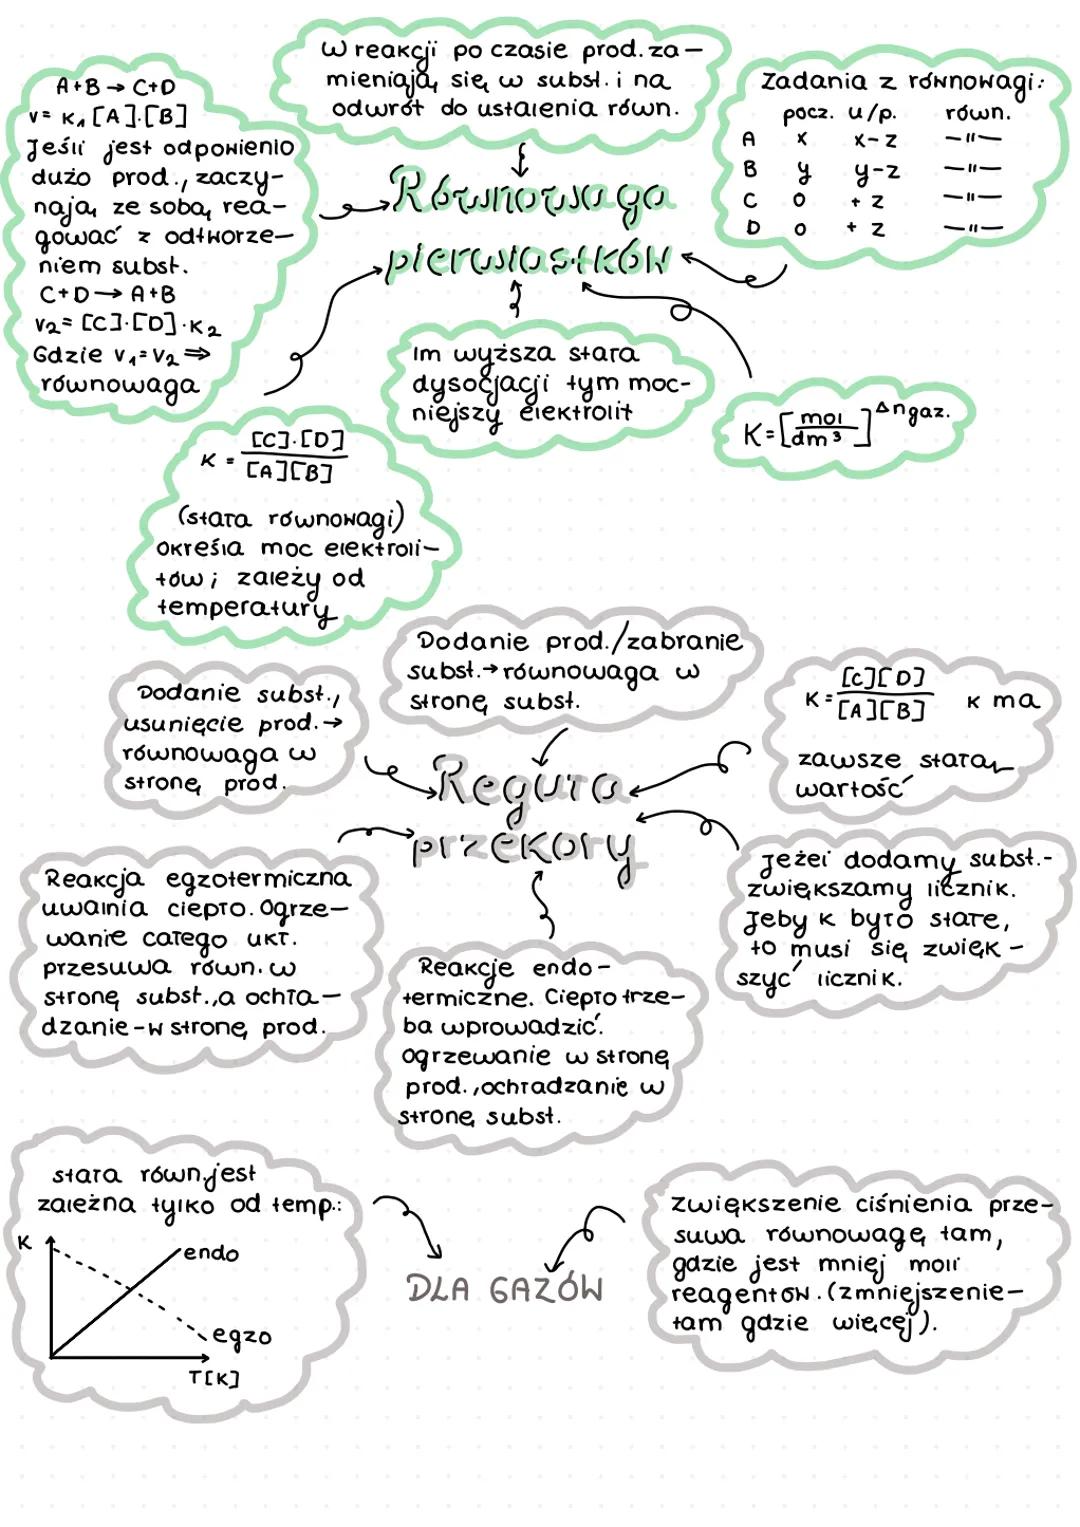 W reakcji po czasie prod. za-
mieniają się w subst. i na
odwrót do ustalenia równ.
A+B → C+D
v= K₁[A]·[B]
Jeśli jest odpowienio
dużo prod., zaczy-
nają ze sobą rea-
gować z odtworze-
niem subst.
C+D → A+B
v₂= [C]·[D]·K₂
Gdzie v₁=v₂ ⇒
równowaga
Zadania z równowagi:
pocz. u/p. równ.
A x x-z -||-
B y y-z -||-
C 0 +z -||-
D 0 +z -||-
Równowaga
pierwiastków
Im wyższa stała
dysocjacji tym moc-
niejszy elektrolit
K=[mol/dm³]^Δngaz.
K = [C]·[D]/[A][B]
(stała równowagi)
określa moc elektroli-
tów; zależy od
temperatury
Dodanie prod./zabranie
subst.→równowaga w
stronę subst.
Dodanie subst.,
usunięcie prod.→
równowaga w
stronę prod.
K=[C][D]/[A][B] K ma
zawsze stałą
wartość
Reguła
przekory
Reakcja egzotermiczna
uwalnia ciepło. Ogrze-
wanie całego ukł.
przesuwa równ. w
stronę subst., a ochła-
dzanie-w stronę prod.
Reakcje endo-
termiczne. Ciepło trze-
ba wprowadzić.
Ogrzewanie w stronę
prod., ochładzanie w
stronę subst.
Jeżei dodamy subst.-
zwiększamy licznik.
Jeby K było stałe,
to musi się zwięk-
szyć licznik.
stała równ. jest
zależna tylko od temp.:
K
endo
egzo
T[K]
DLA GAZÓW
Zwiększenie ciśnienia prze-
suwa równowagę tam,
gdzie jest mniej moli
reagentów. (zmniejszenie-
tam gdzie więcej).